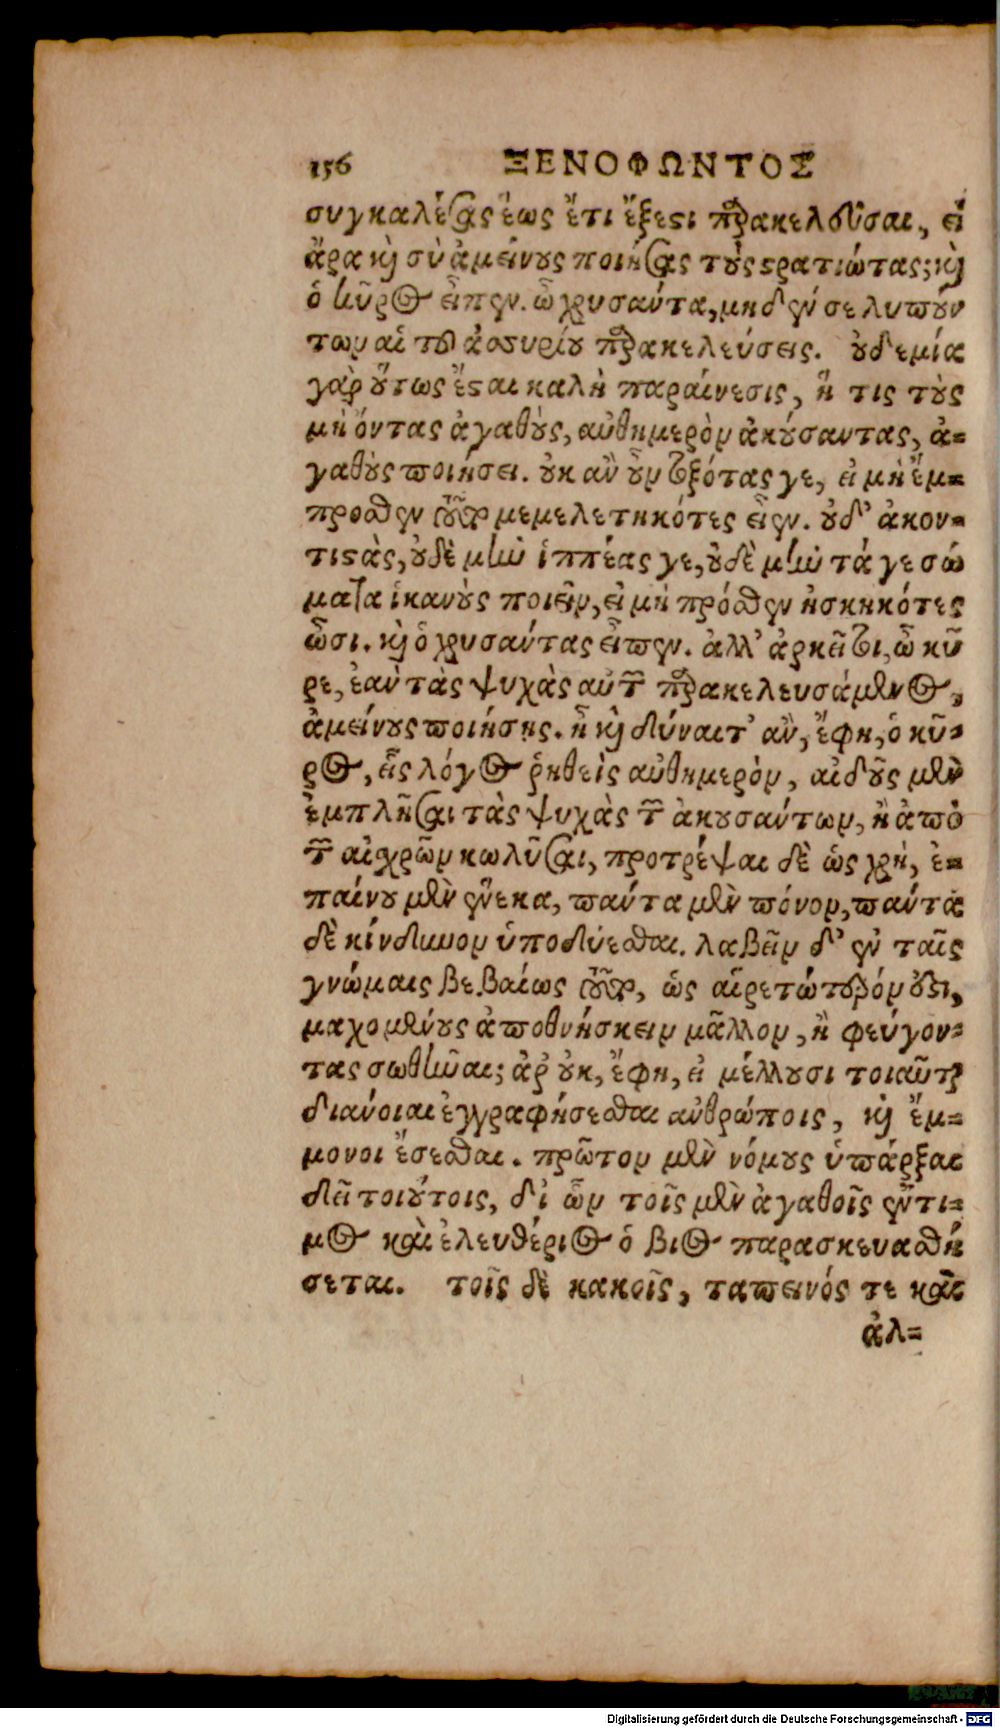 156 ΞΕΝΟΦΩΝΤΟΣ
συγκαλέσας ἕως ἔτι ἔξεστι παρακελεῦσαι, εἰ
ἄρα καὶ σὺ ἀμείνους ποιήσας τοὺς στρατιώτας; καὶ
ὁ κῦρος εἶπεν. ὦ χρυσάντα, μηδέν σε λυπούν
των αἱ τοῦ ἀσσυρίου παρακελεύσεις. οὐδεμία
γὰρ οὕτως ἔσται καλὴ παραίνεσις, ἥ τις τοὺς
μὴ ὄντας ἀγαθοὺς, αὐθημερὸν ἀκούσαντας, ἀ-
γαθοὺς ποιήσει. οὐκ ἂν οὖν τοξότας γε, εἰ μὴ ἔμ-
προσθεν τοῦτο μεμελετηκότες εἶεν. οὐδ' ἀκον-
τιστὰς, οὐδὲ μὴν ἱππέας γε, οὐδὲ μὴν τά γε σώ
ματα ἱκανοὺς ποιεῖν, εἰ μὴ πρόσθεν ἠσκηκότες
ὦσι. καὶ ὁ χρυσάντας εἶπεν. ἀλλ' ἀρκεῖ τοι, ὦ κῦ
ρε, ἐὰν τὰς ψυχὰς αὐτῶν παρακελευσάμενος,
ἀμείνους ποιήσῃς. ἦ καὶ δύναιτ' ἂν, ἔφη, ὁ κῦ-
ρος, εἷς λόγος ῥηθεὶς αὐθημερὸν, αἰδοῦς μὲν
ἐμπλῆσαι τὰς ψυχὰς τῶν ἀκουσάντων, ἢ ἀπὸ
τῶν αἰσχρῶν κωλῦσαι, προτρέψαι δὲ ὡς χρὴ, ἐ-
παίνου μὲν ἕνεκα, πάντα μὲν πόνον, πάντα
δὲ κίνδυνον ὑποδύεσθαι. λαβεῖν δ' ἐν ταῖς
γνώμαις βεβαίως τοῦτο, ὡς αἱρετώτερόν ἐστι,
μαχομένους ἀποθνήσκειν μᾶλλον, ἢ φεύγον-
τας σωθῆναι; ἆρ' οὐκ, ἔφη, εἰ μέλλουσι τοιαῦται
διάνοιαι ἐγγραφήσεσθαι ἀνθρώποις, καὶ ἔμ-
μονοι ἔσεσθαι. πρῶτον μὲν νόμους ὑπάρξαι
δεῖ τοιούτοις, δι' ὧν τοῖς μὲν ἀγαθοῖς ἔντι-
μος καὶ ἐλευθέριος ὁ βίος παρασκευασθή
σεται. τοῖς δὲ κακοῖς, ταπεινός τε καὶ
ἀλ-
Digitalisierung gefördert durch die Deutsche Forschungsgemeinschaft - DFG